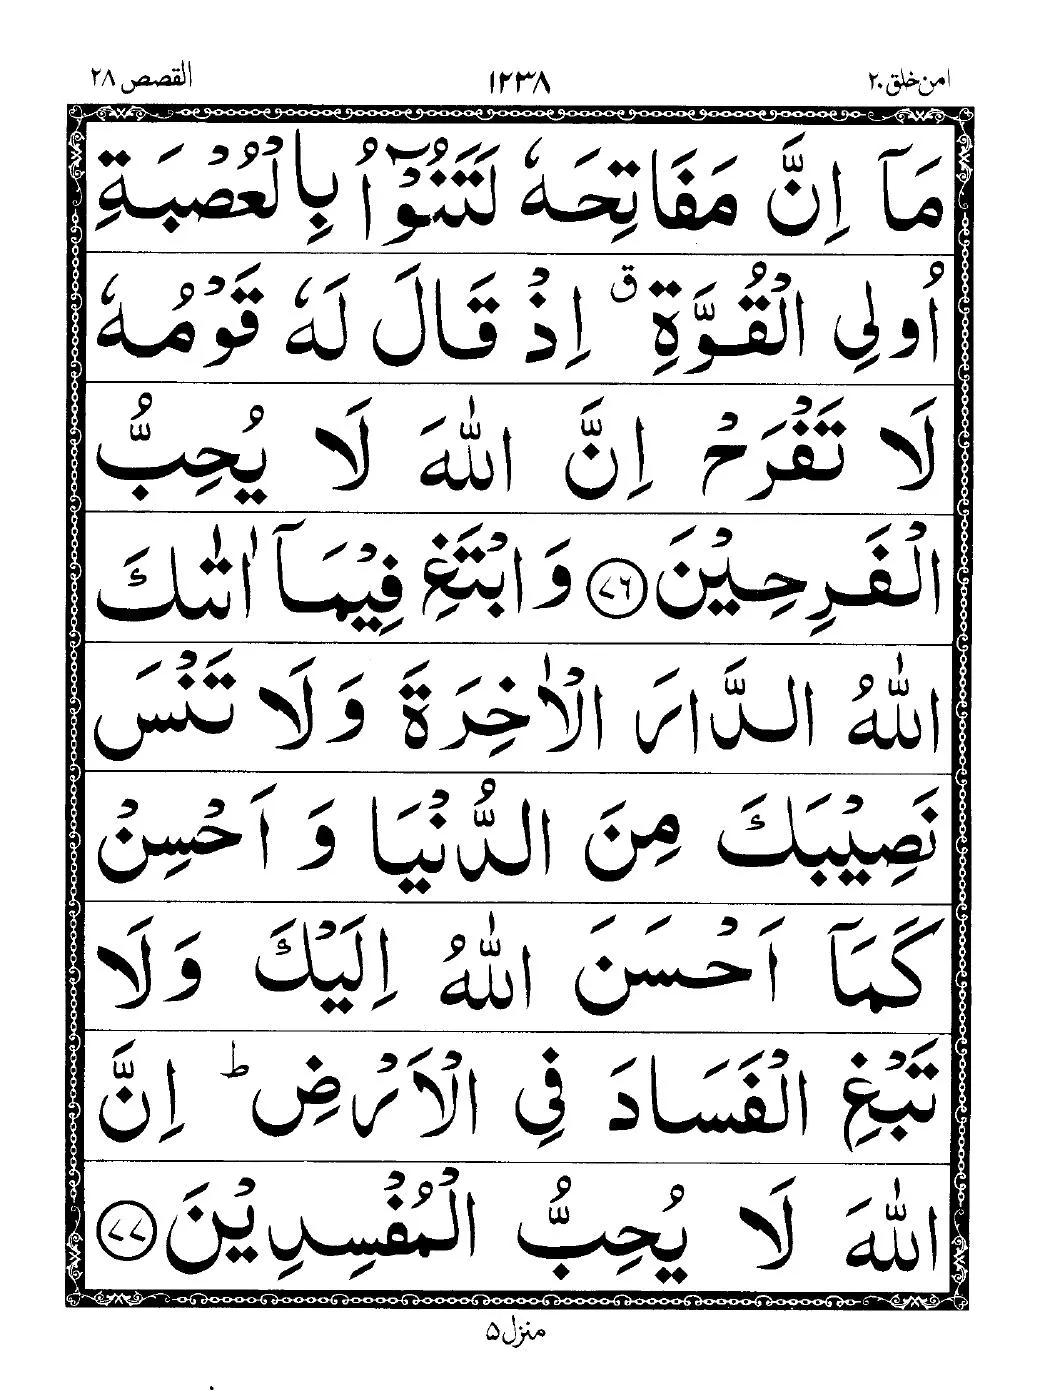 امن خلق ۲۰ ۱۲۳۸ القصص ۲۸
مَاۤ اِنَّ مَفَاتِحَهٗ لَتَنُوْٓاُ بِالْعُصْبَةِ
اُولِي الْقُوَّةِ ۗ اِذْ قَالَ لَهٗ قَوْمُهٗ
لَا تَفْرَحْ اِنَّ اللّٰهَ لَا يُحِبُّ
الْفَرِحِيْنَ ﴿۷۶﴾ وَ ابْتَغِ فِيْمَاۤ اٰتٰىكَ
اللّٰهُ الدَّارَ الْاٰخِرَةَ وَلَا تَنْسَ
نَصِيْبَكَ مِنَ الدُّنْيَا وَ اَحْسِنْ
كَمَاۤ اَحْسَنَ اللّٰهُ اِلَيْكَ وَلَا
تَبْغِ الْفَسَادَ فِي الْاَرْضِ ؕ اِنَّ
اللّٰهَ لَا يُحِبُّ الْمُفْسِدِيْنَ ﴿۷۷﴾
منزل ۵